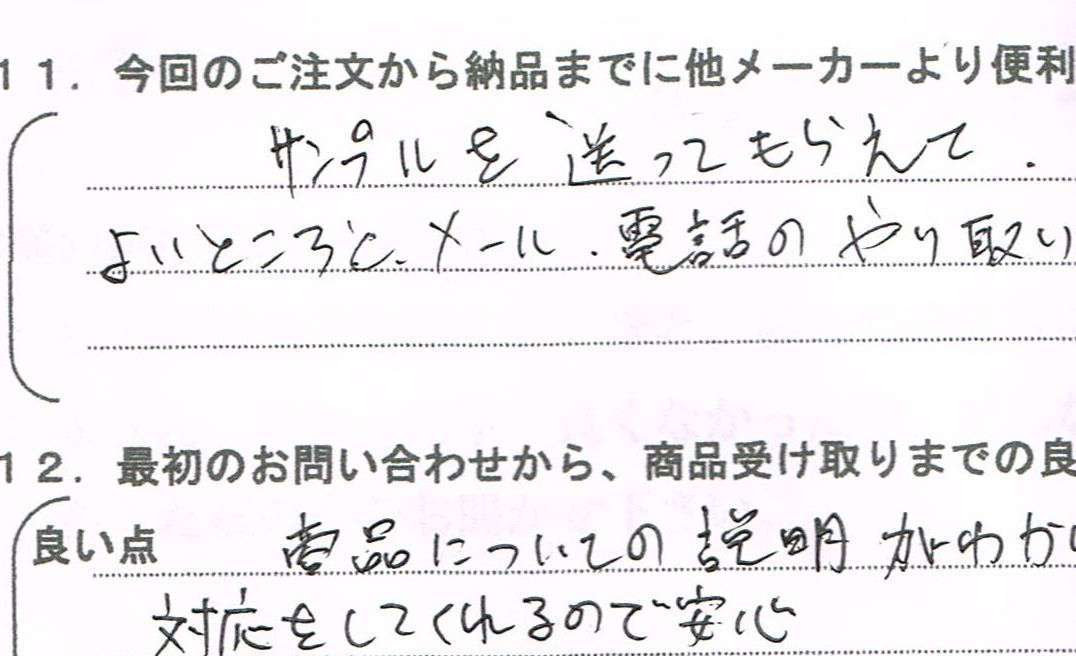 11．今回のご注文から納品までに他メーカーより便利
サンプルを送ってもらえて．
よいところと、メール．電話のやり取り
12．最初のお問い合わせから、商品受け取りまでの良
良い点 商品についての説明がわかり
対応をしてくれるので安心